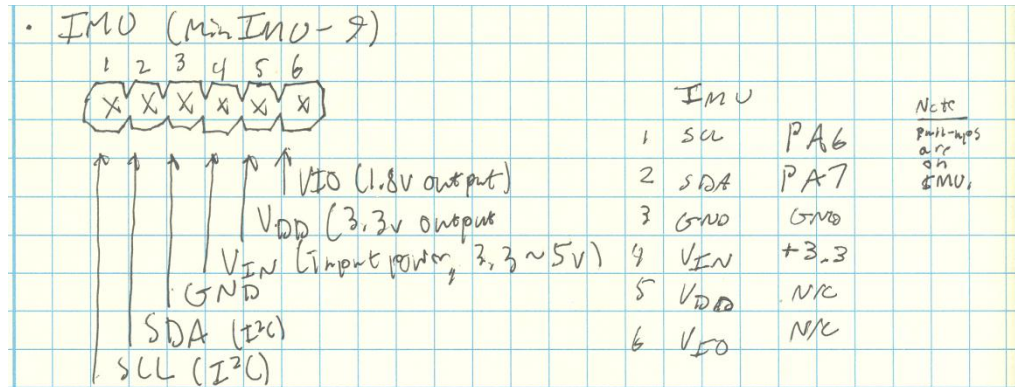 · IMU (MinIMU-9)
1 2 3 4 5 6
X X X X X X
VIO (1.8v output)
VDD (3.3v output
VIN (Input power, 3.3~5v)
GND
SDA (I²C)
SCL (I²C)
IMU
1 SCL PA6
2 SDA PA7
3 GND GND
4 VIN +3.3
5 VDD N/C
6 VIO N/C
Note
Pull-ups
are
on
IMU.